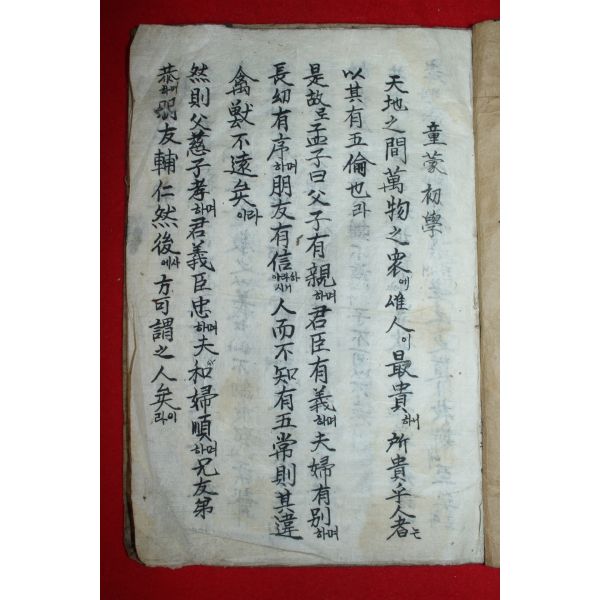 童蒙初學
天地之間萬物之衆에 雄人이 最貴하니 所貴乎人者는
以其有五倫也라
是故로 孟子曰父子有親하며 君臣有義하며 夫婦有別하며
長幼有序하며 朋友有信이라하시니 人而不知有五常則其違
禽獸不遠矣이라
然則父慈子孝하며 君義臣忠하며 夫和婦順하며 兄友弟
恭하며 朋友輔仁然後에사 方可謂之人矣라이